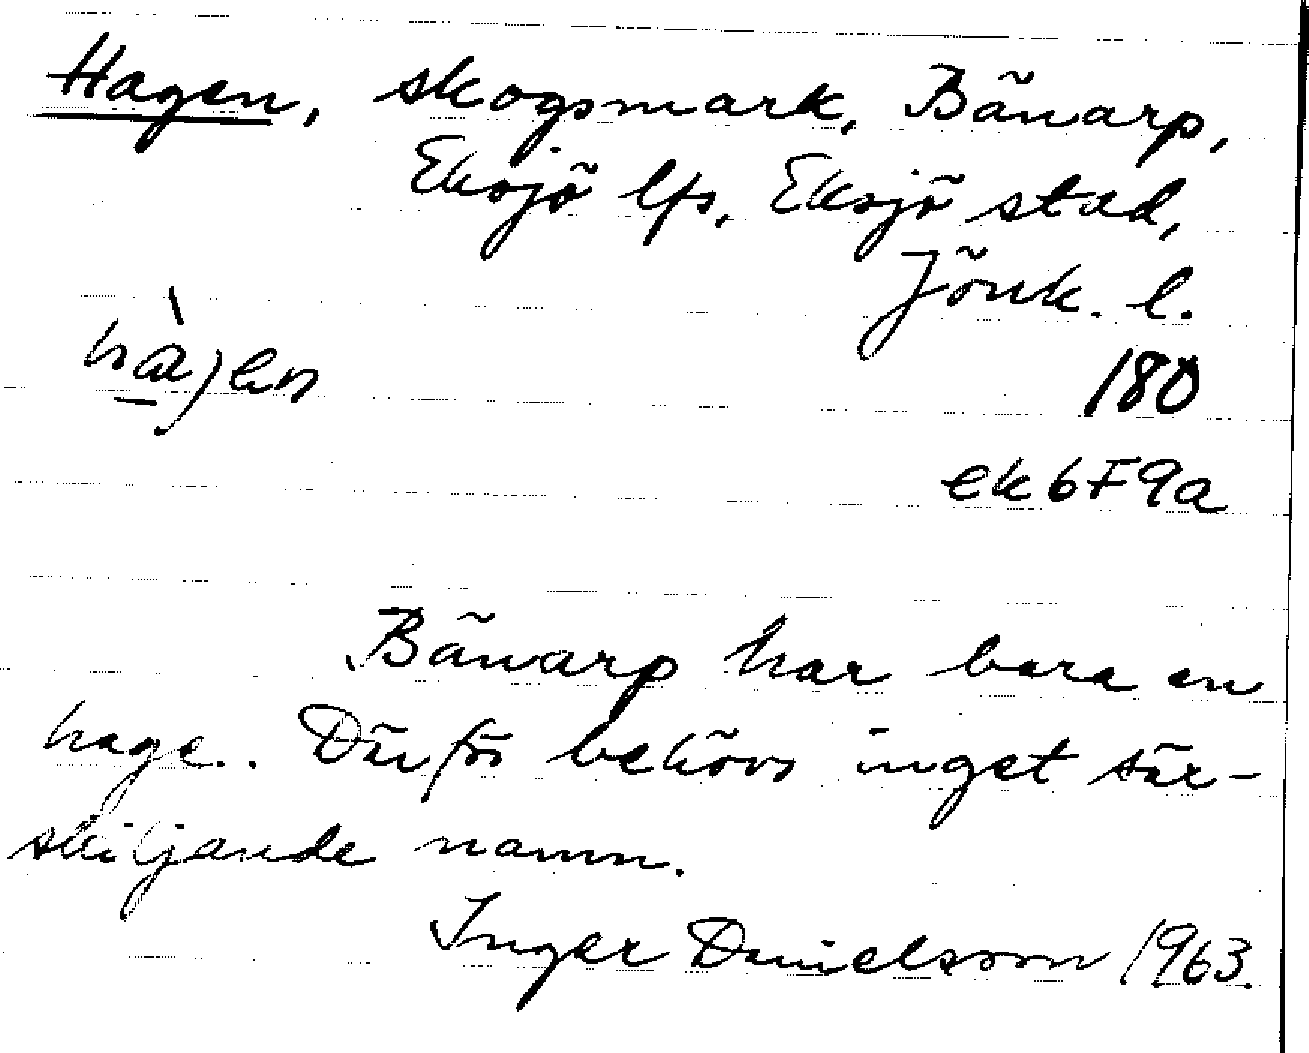 Hagen, skogsmark, Bänarp,
Eksjö lfs, Eksjö stad,
Jönk. l.
180
ek6F9a
Bänarp har bara en
hage. Därför behövs inget sär-
skiljande namn.
Inger Danielsson 1963.